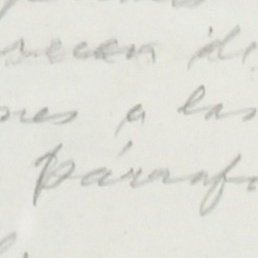 recen de
nes a las
párraf